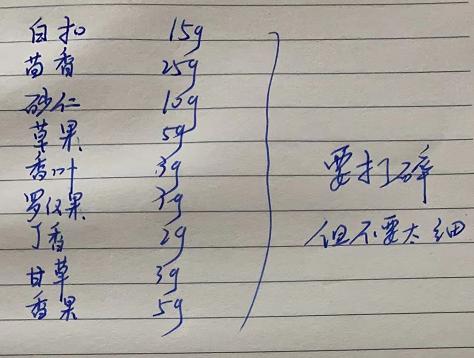 白扣 15g
茴香 25g
砂仁 10g
草果 5g
香叶 3g
罗汉果 3g
丁香 2g
甘草 3g
香果 5g
要打碎
但不要太细